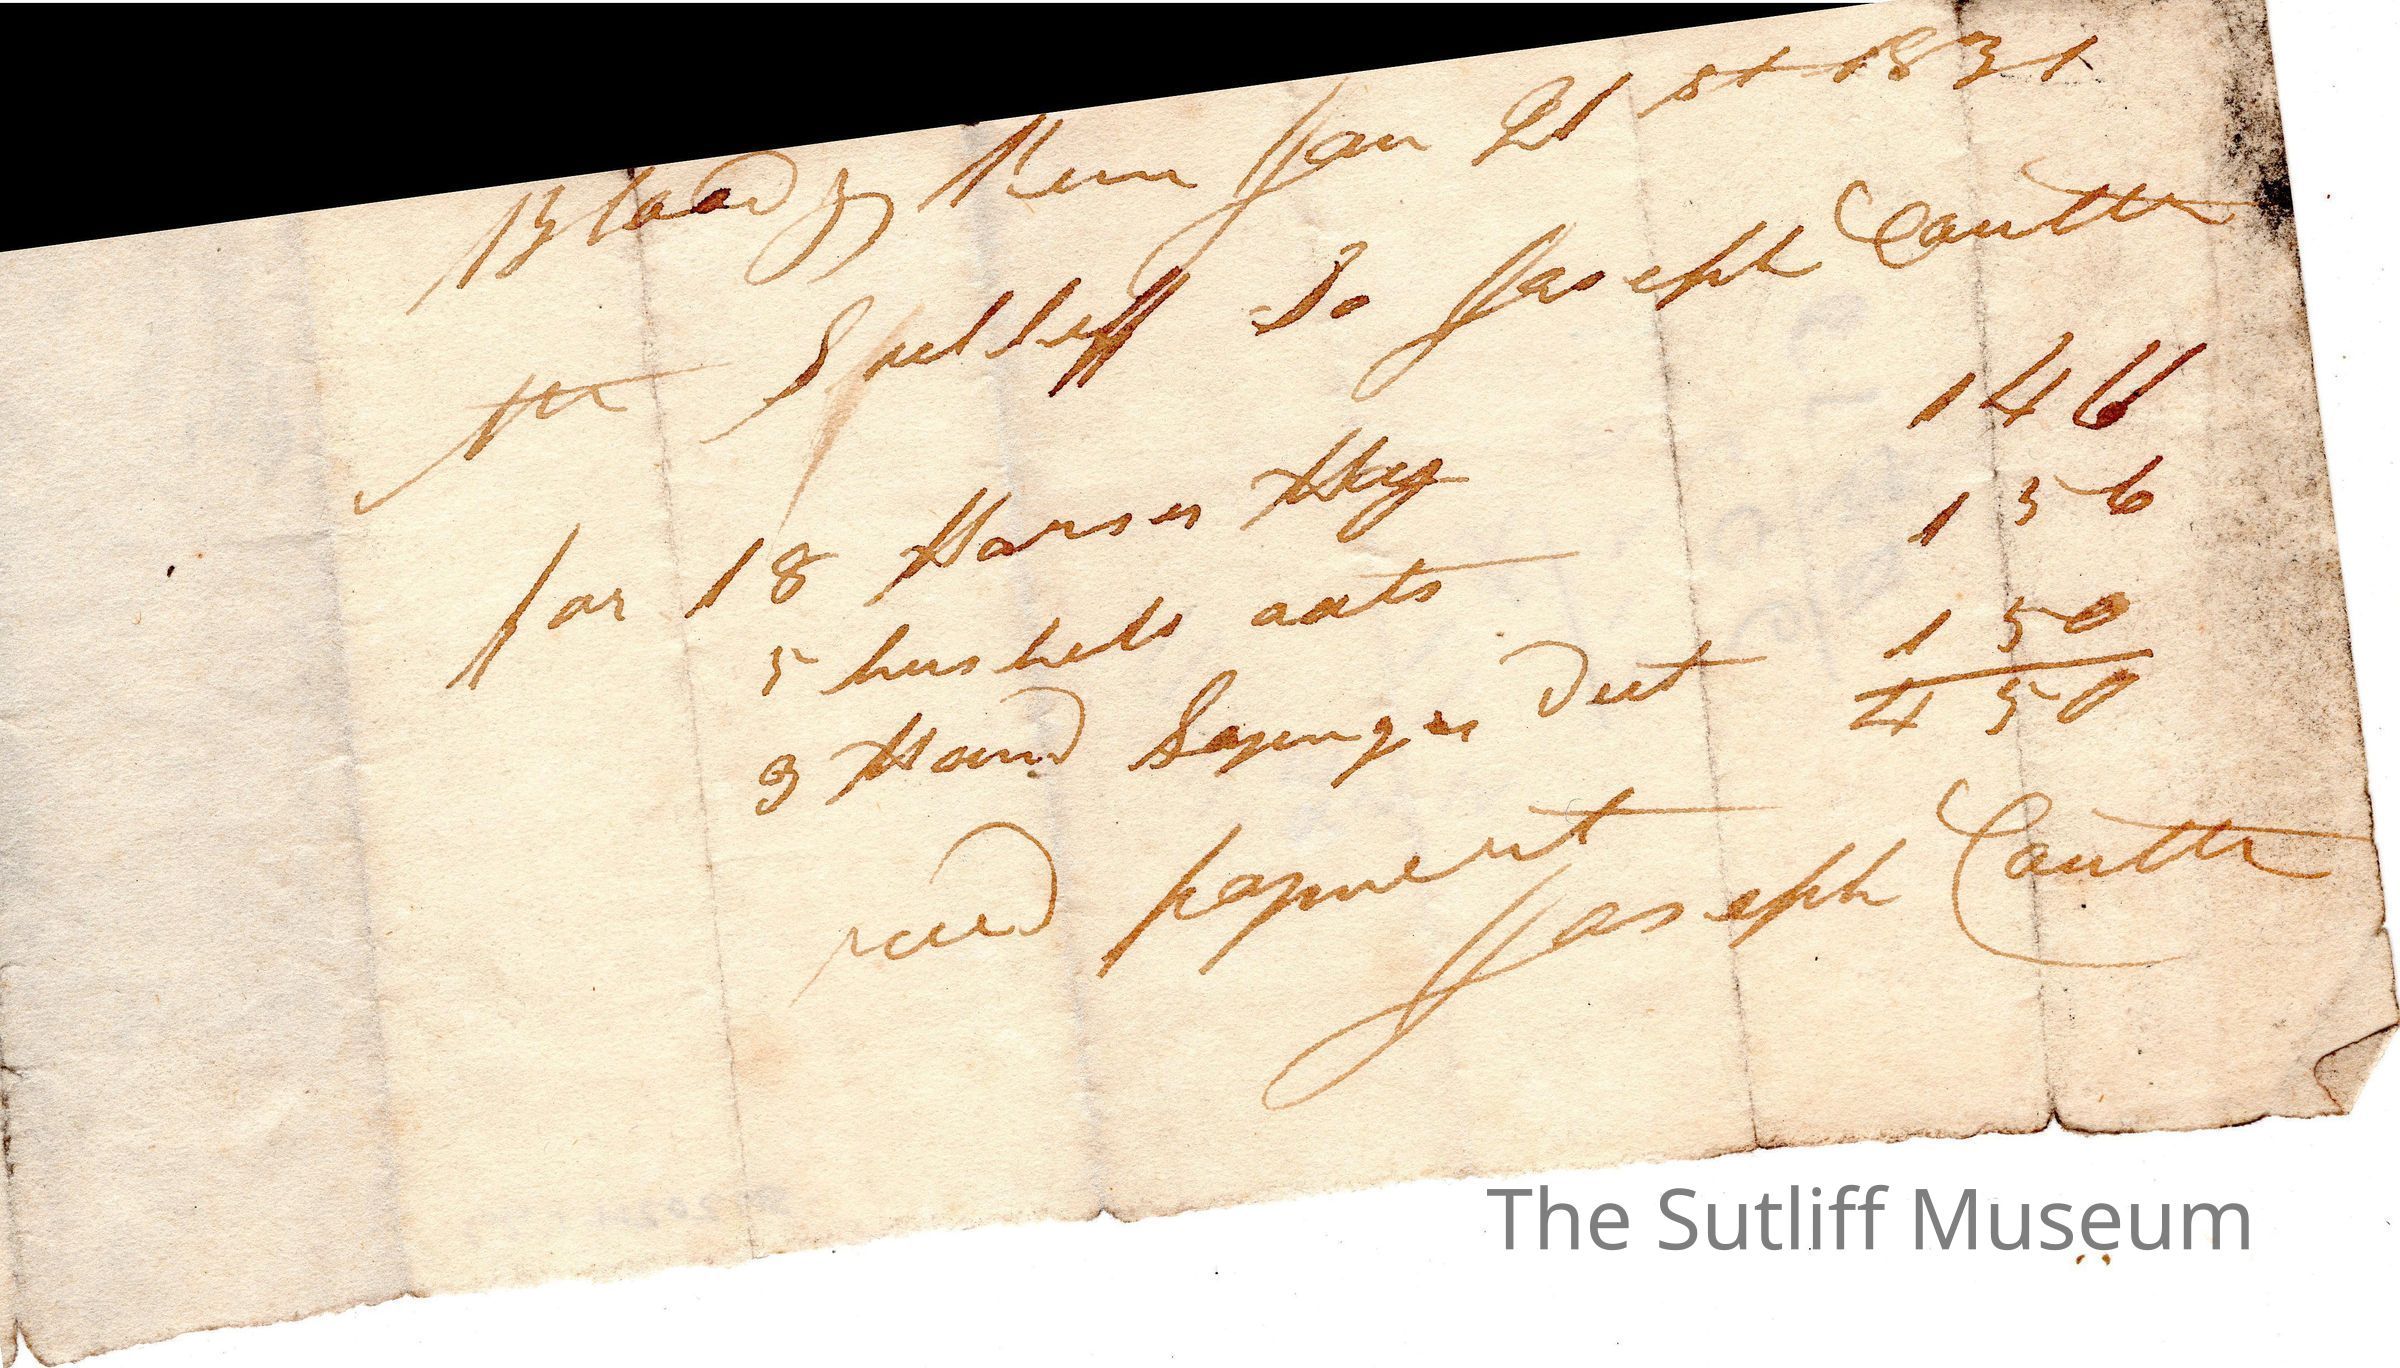 Bloody Run Jan 21 st 1831
Mr Sutleff Do Joseph Couttr
for 18 Horses Hay 1 46
5 bushels oats 1 56
3 Hand Sponges Diet 1 50
4 50
recd payment
Joseph Couttr
The Sutliff Museum